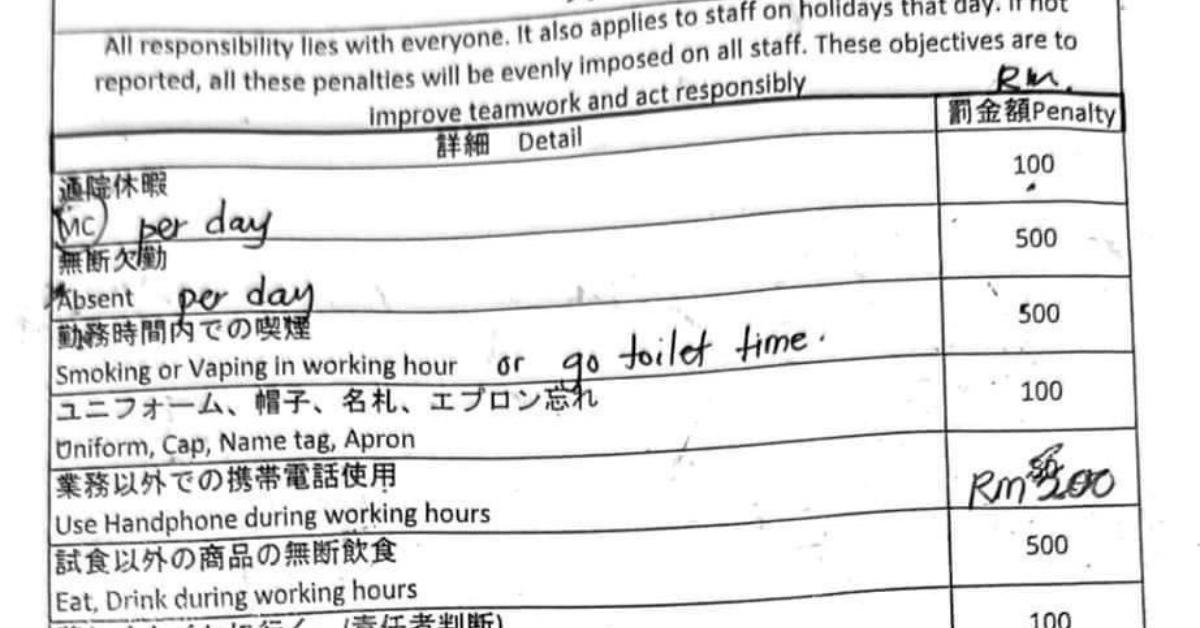 All responsibility lies with everyone. It also applies to staff on holidays that day. If not
reported, all these penalties will be evenly imposed on all staff. These objectives are to
improve teamwork and act responsibly
RM.
詳細 Detail
罰金額Penalty
通院休暇
100
MC) per day
無断欠勤
500
Absent per day
勤務時間内での喫煙
500
Smoking or Vaping in working hour or go toilet time.
ユニフォーム、帽子、名札、エプロン忘れ
100
Uniform, Cap, Name tag, Apron
業務以外での携帯電話使用
Rm 200
Use Handphone during working hours
試食以外の商品の無断飲食
500
Eat, Drink during working hours
(責任者判断)
100